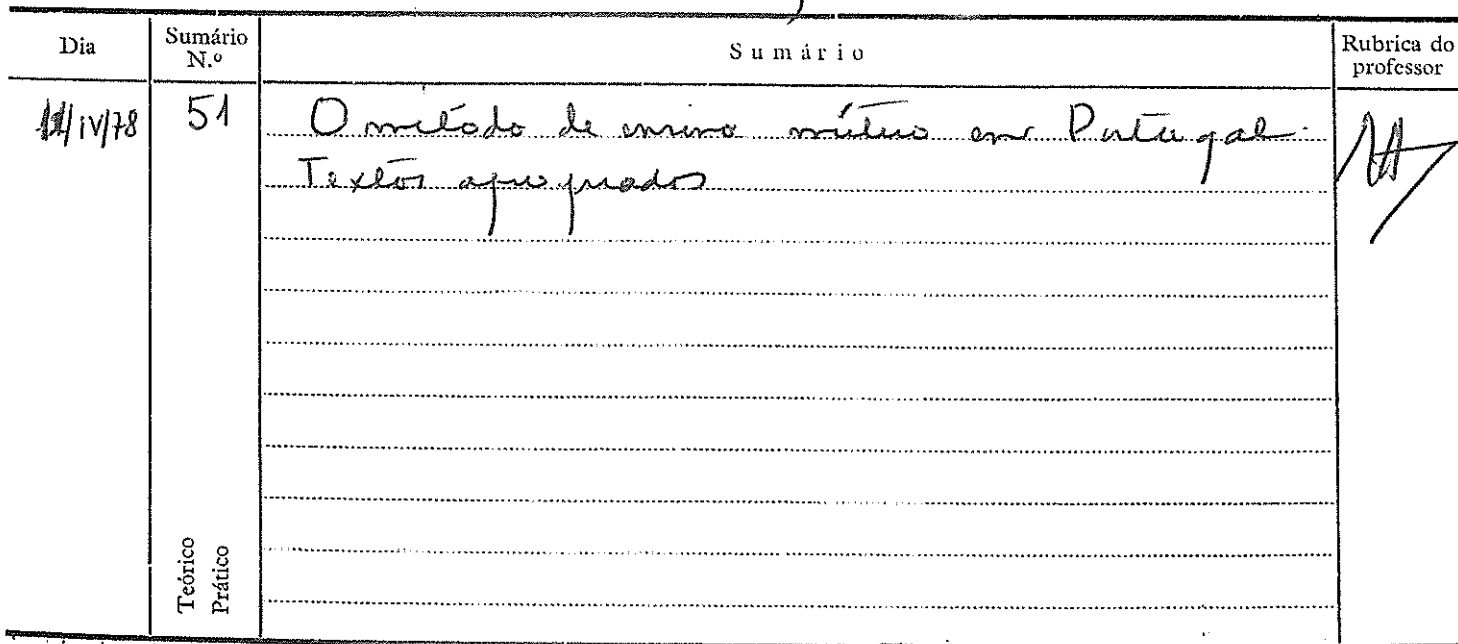 Dia
Sumário N.º
Sumário
Rubrica do professor
/IV/78
51
O método de ensino mútuo em Portugal.
Textos apropriados
Teórico
Prático